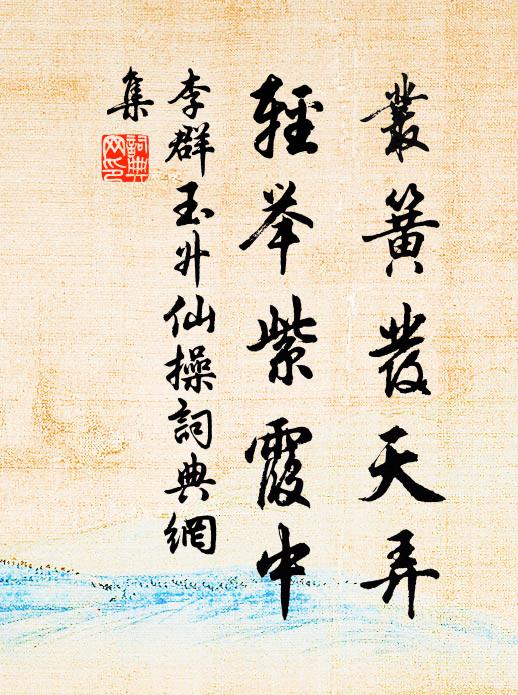 叢簧發天弄
輕举紫霞中
李群玉升仙操詞典網
集
詞典网印